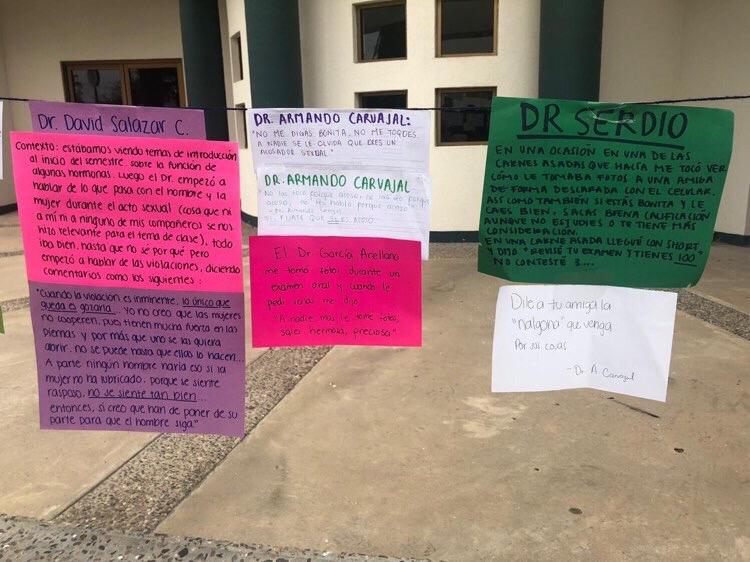 Dr. David Salazar C.
Contexto: estábamos viendo temas de introducción
al inicio del semestre, sobre la función de
algunas hormonas. Luego el Dr. empezó a
hablar de lo que pasa con el hombre y la
mujer durante el acto sexual (cosa que ni
a mí ni a ninguno de mis compañeros se nos
hizo relevante para el tema de clase), todo
iba bien, hasta que no sé por qué pero
empezó a hablar de las violaciones, diciendo
comentarios como los siguientes:
"Cuando la violación es inminente, lo único que
queda es gozarla... Yo no creo que las mujeres
no cooperen, pues tienen mucha fuerza en las
piernas y por más que uno se las quiera
abrir, no se puede hasta que ellas lo hacen...
A parte ningún hombre haría eso si la
mujer no ha lubricado, porque se siente
rasposo, no se siente tan bien...
entonces, sí creo que han de poner de su
parte para que el hombre siga."
DR. ARMANDO CARVAJAL:
"NO ME DIGAS BONITA, NO ME TOQUES,
A NADIE SE LE OLVIDA QUE ERES UN
ACOSADOR SEXUAL"
DR. ARMANDO CARVAJAL
"No las toco porque acoso, no las veo porque
acoso, no les hablo porque acoso"
- Dr. Armando
FÍJATE QUE SÍ ES ACOSO
El Dr García Arellano
me tomó fotos durante un
examen oral y cuando le
pedí me dijo:
"A nadie más le tomé fotos,
sales hermosa, preciosa"
DR SERDIO
EN UNA OCASIÓN EN UNA DE LAS
CARNES ASADAS QUE HACÍA ME TOCÓ VER
CÓMO LE TOMABA FOTOS A UNA AMIGA
DE FORMA DESCARADA CON EL CELULAR,
ASÍ COMO TAMBIÉN SI ESTÁS BONITA Y LE
CAES BIEN, SACAS BUENA CALIFICACIÓN
AUNQUE NO ESTUDIES O TE TIENE MÁS
CONSIDERACIÓN.
EN UNA CARNE ASADA LLEGUÉ CON SHORT
Y DIJO "REVISÉ TU EXAMEN Y TIENES 100"
NO CONTESTÉ 3...
Dile a tu amiga la
"nalgona" que venga
por sus cosas
- Dr. A. Carvajal